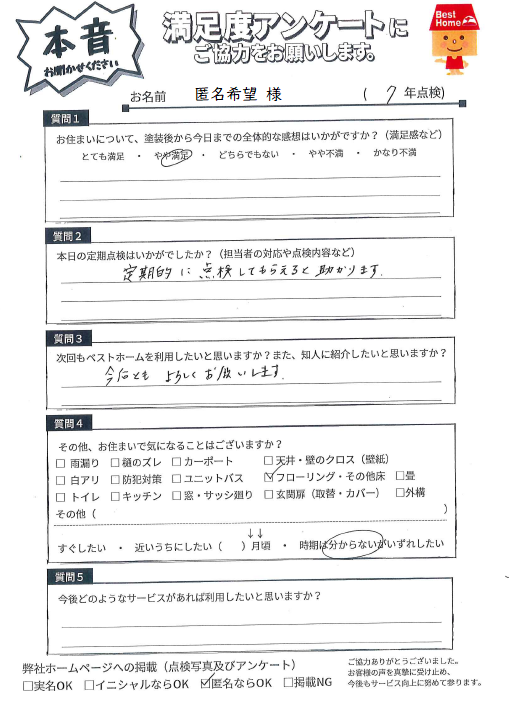 本音
お聞かせください
満足度アンケートに
ご協力をお願いします。
Best Home
お名前 匿名希望 様 ( 7 年点検)
質問1
お住まいについて、塗装後から今日までの全体的な感想はいかがですか？（満足感など）
とても満足 ・ やや満足 ・ どちらでもない ・ やや不満 ・ かなり不満
質問2
本日の定期点検はいかがでしたか？（担当者の対応や点検内容など）
定期的に点検してもらえると助かります.
質問3
次回もベストホームを利用したいと思いますか？また、知人に紹介したいと思いますか？
今后とも よろしくお願いします.
質問4
その他、お住まいで気になることはございますか？
□ 雨漏り □ 樋のズレ □ カーポート □ 天井・壁のクロス（壁紙）
□ 白アリ □ 防犯対策 □ ユニットバス ☑ フローリング・その他床 □ 畳
□ トイレ □ キッチン □ 窓・サッシ廻り □ 玄関扉（取替・カバー） □ 外構
その他（ ）
↓↓
すぐしたい ・ 近いうちにしたい（ ）月頃 ・ 時期は分からないがいずれしたい
質問5
今後どのようなサービスがあれば利用したいと思いますか？
弊社ホームページへの掲載（点検写真及びアンケート）
□実名OK □イニシャルならOK ☑匿名ならOK □掲載NG
ご協力ありがとうございました。
お客様の声を真摯に受け止め、
今後もサービス向上に努めて参ります。